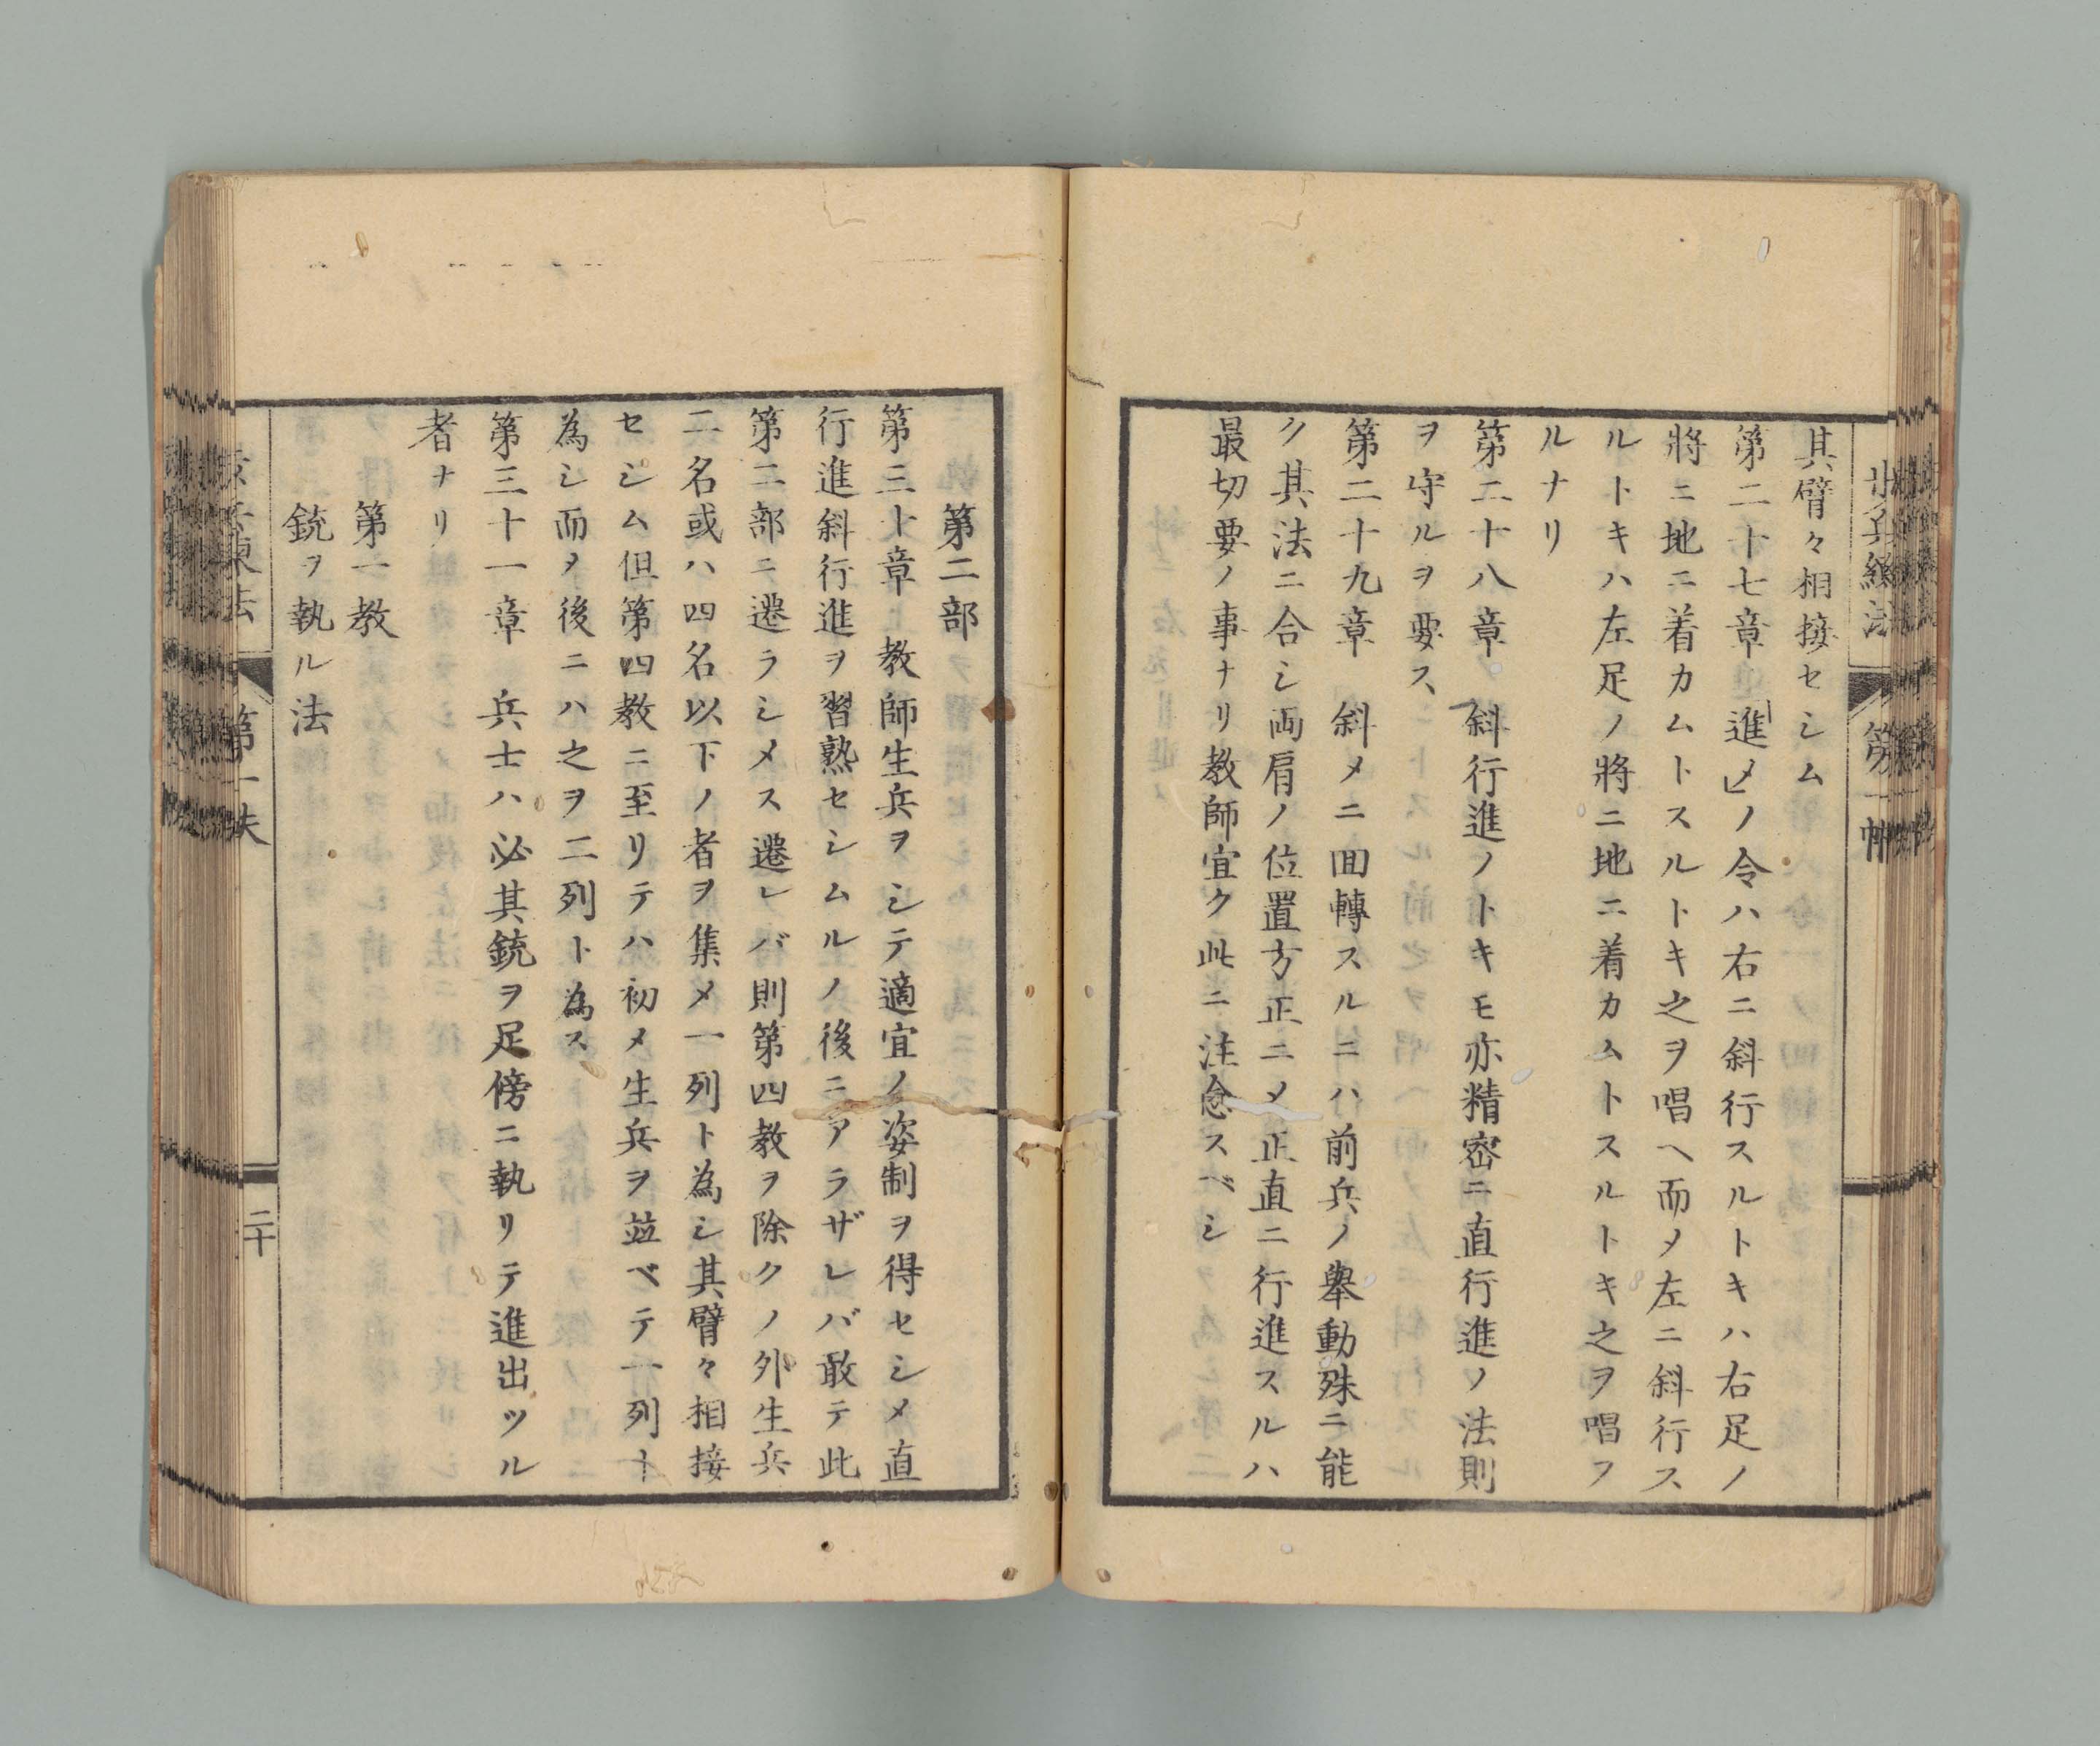 其臂々相接セシム
第二十七章「進メ」ノ令ハ右ニ斜行スルトキハ右足ノ
將ニ地ニ着カムトスルトキ之ヲ唱ヘ而メ左ニ斜行ス
ルトキハ左足ノ將ニ地ニ着カムトスルトキ之ヲ唱フ
ルナリ
第二十八章 斜行進ノトキモ亦精密ニ直行進ノ法則
ヲ守ルヲ要ス
第二十九章 斜メニ囬轉スルニハ前兵ノ舉動殊ニ能
ク其法ニ合シ両肩ノ位置方正ニメ正直ニ行進スルハ
最切要ノ事ナリ教師宜ク此ニ注念スベシ
第二部
第三十章 教師生兵ヲシテ適宜ノ姿制ヲ得セシメ直
行進斜行進ヲ習熟セシムルノ後ニアラザレバ敢テ此
第二部ニ遷ラシメス遷レバ則第四教ヲ除クノ外生兵
二名或ハ四名以下ノ者ヲ集メ一列ト為シ其臂々相接
セシム但第四教ニ至リテハ初メ生兵ヲ並ベテ一列ト
為シ而ヲ後ニハ之ヲ二列ト為ス
第三十一章 兵士ハ必其銃ヲ足傍ニ執リテ進出ツル
者ナリ
第一教
銃ヲ執ル法
二十